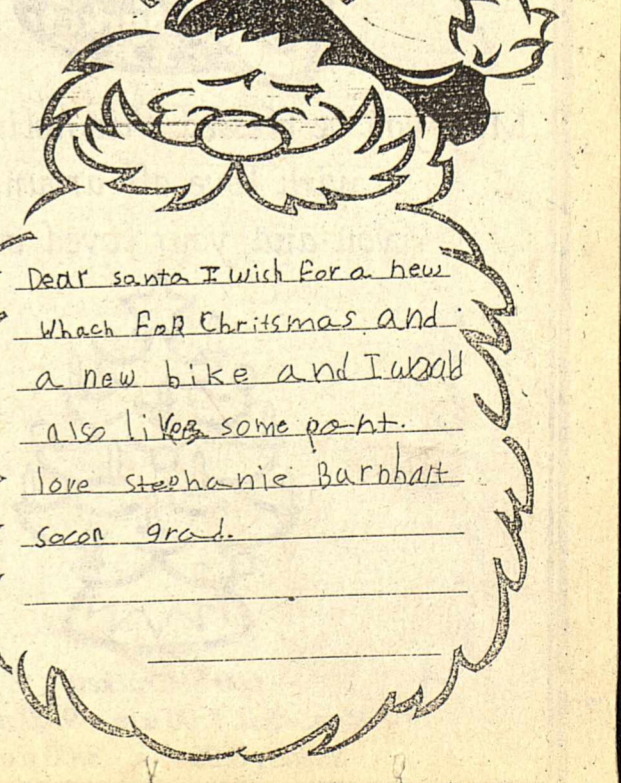 Dear santa I wish For a new
Whach FoR Chritsmas and
a new bike and I woald
also like some paint.
love stephanie Barnhart
secon grad.